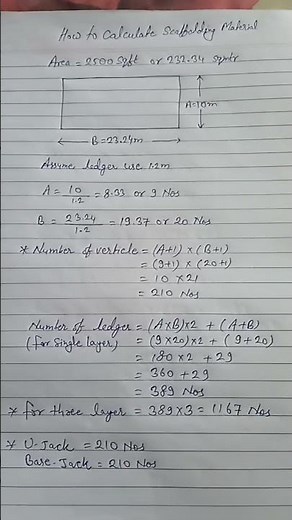 How to Calculate Scaffolding Material
Area = 2500 Sqft or 232.34 Sqmtr
A=10m
B=23.24m
Assume ledger use 1.2m
A = 10/1.2 = 8.33 or 9 Nos
B = 23.24/1.2 = 19.37 or 20 Nos
* Number of verticle = (A+1) × (B+1)
= (9+1) × (20+1)
= 10 × 21
= 210 Nos
Number of ledger = (A×B)×2 + (A+B)
(for single layer) = (9×20)×2 + (9+20)
= 180×2 + 29
= 360+29
= 389 Nos
* for three layer = 389×3 = 1167 Nos
* U-Jack = 210 Nos
Base-Jack = 210 Nos